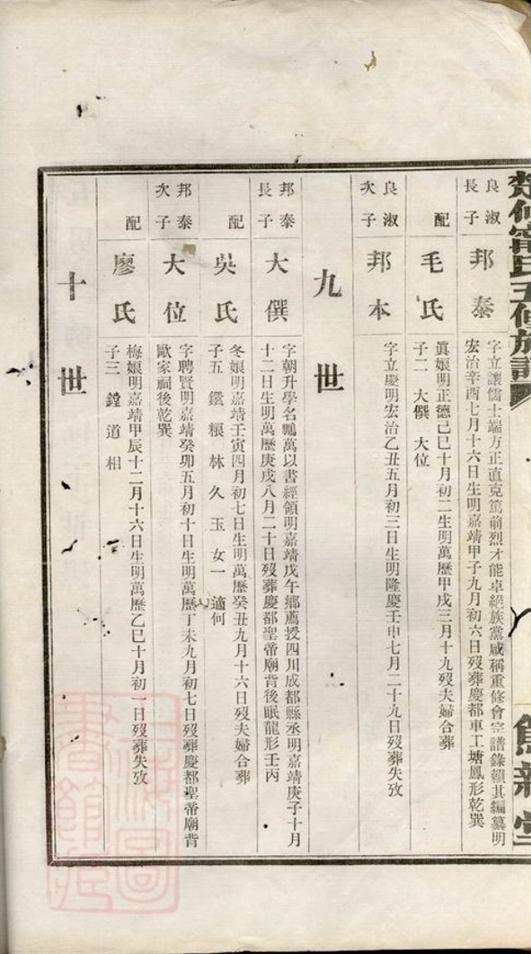 甯氏五修族譜
良淑長子
邦泰
字立讓儒士端方正直克篤前烈才能卓絕族黨咸稱重修會宗譜錄賴其編纂明
宏治辛酉七月十六日生明嘉靖甲子九月初六日歿葬慶都車工塘鳳形乾巽
配
毛氏
眞娘明正德己巳十月初二生明萬歷甲戌三月十九歿夫婦合葬
子二 大僎 大位
良淑次子
邦本
字立慶明宏治乙丑五月初三日生明隆慶壬申七月二十九日歿葬失攷
九世
邦泰長子
大僎
字朝升學名鵬萬以書經領明嘉靖戊午鄉薦授四川成都縣丞明嘉靖庚子十月
十二日生明萬歷庚戌八月二十日歿葬慶都聖帝廟背後眠龍形壬丙
配
吳氏
冬娘明嘉靖壬寅四月初七日生明萬歷癸丑九月十六日歿夫婦合葬
子五 鑨 榱 林 久 玉 女一 適何
邦泰次子
大位
字聘賢明嘉靖癸卯五月初十日生明萬歷丁未九月初七日歿葬慶都聖帝廟背
歐家祠後乾巽
配
廖氏
梅娘明嘉靖甲辰十二月十六日生明萬歷乙巳十月初一日歿葬失攷
子三 鏜 道 相
十世